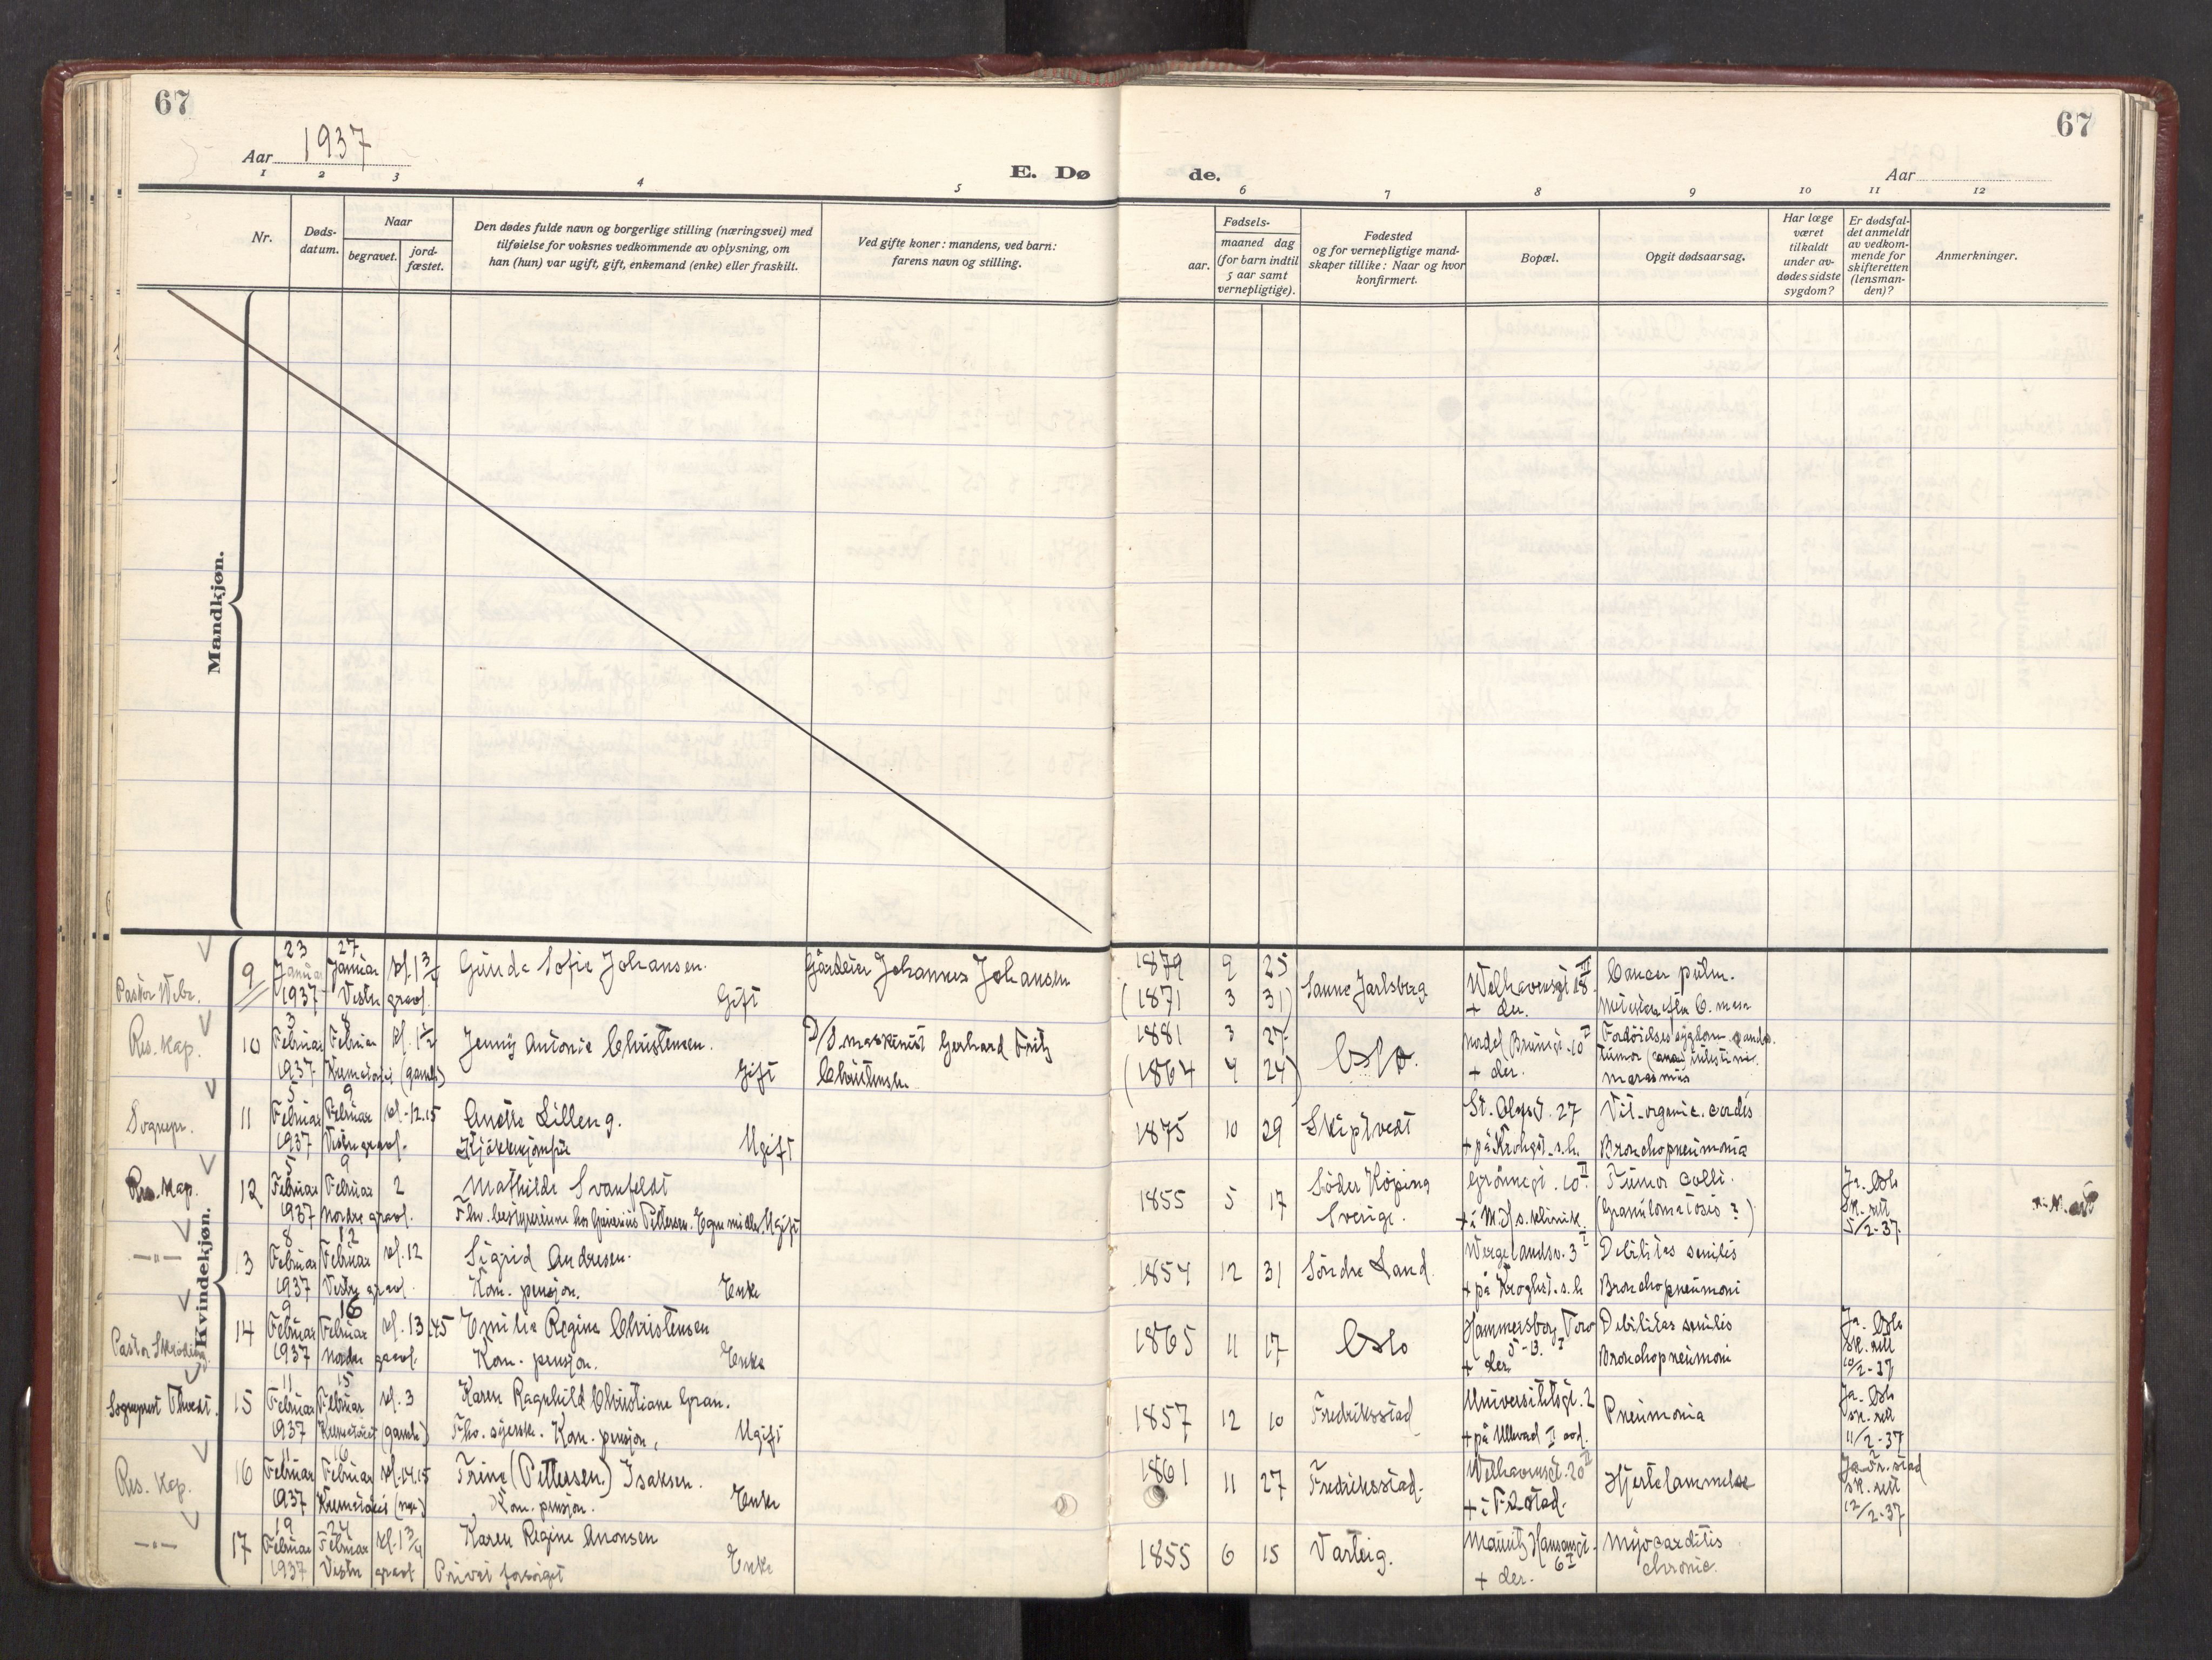 67
67
Aar 1937
E. Døde.
Aar
1 2 3 4 5 6 7 8 9 10 11 12
Nr.
Døds-
datum.
Naar
begravet.
jord-
fæstet.
Den dødes fulde navn og borgerlige stilling (næringsvei) med
tilføielse for voksnes vedkommende av oplysning, om
han (hun) var ugift, gift, enkemand (enke) eller fraskilt.
Ved gifte koner: mandens, ved barn:
farens navn og stilling.
Fødsels-
aar.
maaned dag
(for barn indtil
5 aar samt
vernepligtige).
Fødested
og for vernepligtige mand-
skaper tillike: Naar og hvor
konfirmert.
Bopæl.
Opgit dødsaarsag.
Har læge
været
tilkaldt
under av-
dødes sidste
sygdom?
Er dødsfal-
det anmeldt
av vedkom-
mende for
skifteretten
(lensman-
den)?
Anmerkninger.
Mandkjøn.
Kvindekjøn.
Pastor Webr. 9
23 Januar 1937
27 Januar Vestre gravl.
kl. 1 3/4
Gunda Sofie Johansen.
Gift
Gårdeier Johannes Johansen
1879 9 25
(1871 3 31)
Sanne Jarlsberg
Welhavensgt 18 III
+ der.
Cancer pulm.
C. mam
Res. Kap. 10
3 Februar 1937
8 Februar Krematoriet (gamle)
kl. 1 1/2
Jenny Antonie Christensen.
Gift
D/S maskinist Gerhard Fritz
Christensen
1881 3 27
(1864 4 24)
Oslo.
Nordal Brunsgt. 10 II
+ der.
Fordøielsessygdom
tumor intestini
marasmus
Sognepr. 11
5 Februar 1937
9 Februar Vestre gravl.
kl. 12.15
Anette Lilleng.
Kjøkkenjomfru
Ugift
1875 10 29
Skiptvedt
St. Olavsgt. 27
+ på Krohgst. s.h.
Vit. organic. cordis
Bronchopneumonia
Res. Kap. 12
5 Februar 1937
9 Februar Nordre gravl.
2
Mathilde Svanfeldt
Fhv. bestyrerinne hos Pettersen. Egne midler. Ugift
1855 5 17
Söder Köping
Sverige.
Grønnegt. 10 II
+ i M.J.s. klinik.
Tumor colli.
(Granulomatosis?)
Ja. Oslo
sk. rett
5/2-37
—"— 13
8 Februar 1937
12 Februar Vestre gravl.
kl. 12
Sigrid Andresen.
Kom. pensjon.
Enke
1854 12 31
Søndre Land.
Wergelandsv. 3 I
+ på Kroghst. s.h
Debilitas senilis
Bronchopneumoni
Pastor Skrøding 14
9 Februar 1937
16 Februar Nordre gravl.
kl. 13.45
Emilie Regine Christensen
Kom. pensjon.
Enke
1865 11 17
Oslo
Hammersborg Torv
5-13. I
+ der
Debilitas senilis
Bronchopneumoni
Ja. Oslo
sk. rett
10/2-37
Sogneprest Thvedt. 15
11 Februar 1937
15 Februar Krematoriet (gamle)
kl. 3
Karen Ragnhild Christiane Gran.
Fhv. syerske. Kom. pensjon,
Ugift
1857 12 10
Fredriksstad
Universitetsgt. 2
+ på Ullevaal II avd.
Pneumonia
Ja. Oslo
sk. rett
11/2-37
Res. Kap. 16
11 Februar 1937
16 Februar Krematoriet (nye)
kl. 14.15
Trine (Pettersen) Isaksen.
Kom. pensjon.
Enke
1861 11 27
Fredriksstad.
Welhavensgt. 20 II
+ i F.stad.
Hjertelammelse
Ja Fr.stad
sk. rett
12/2-37
—"— 17
19 Februar 1937
24 Februar Vestre gravl
kl. 1 3/4
Karen Regine Anonsen
Privat forsørget
Enke
1855 6 15
Varteig.
Mauritz Hansensgt.
6 I
+ der.
Myocarditis
chronic.